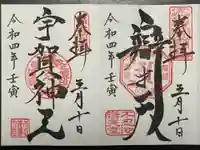 奉拝
五月十日
辨才天
令和四年壬寅
奉拝
五月十日
宇賀神王
令和四年壬寅